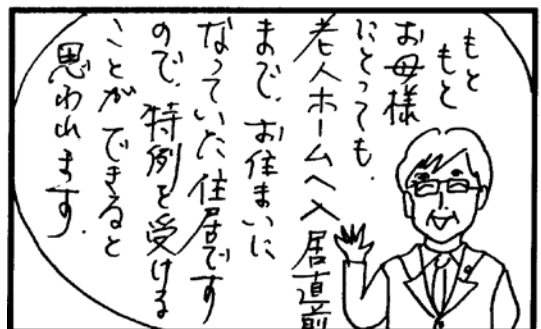 もと
もと
お母様
にとっても、
老人ホームへ入居直前
まで、お住まいに
なっていた住居です
ので、特例を受ける
ことができると
思われます。